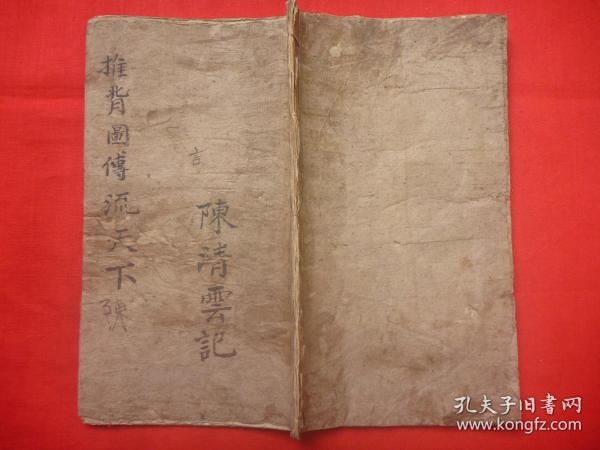 推背圖傳流天下
陳
言
陳清雲記
孔夫子旧书网
www.kongfz.com